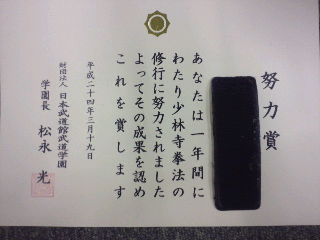 努力賞
あなたは一年間に
わたり少林寺拳法の
修行に努力されました
よってその成果を認め
これを賞します
平成二十四年三月十九日
財団法人 日本武道館武道学園
学園長 松永 光